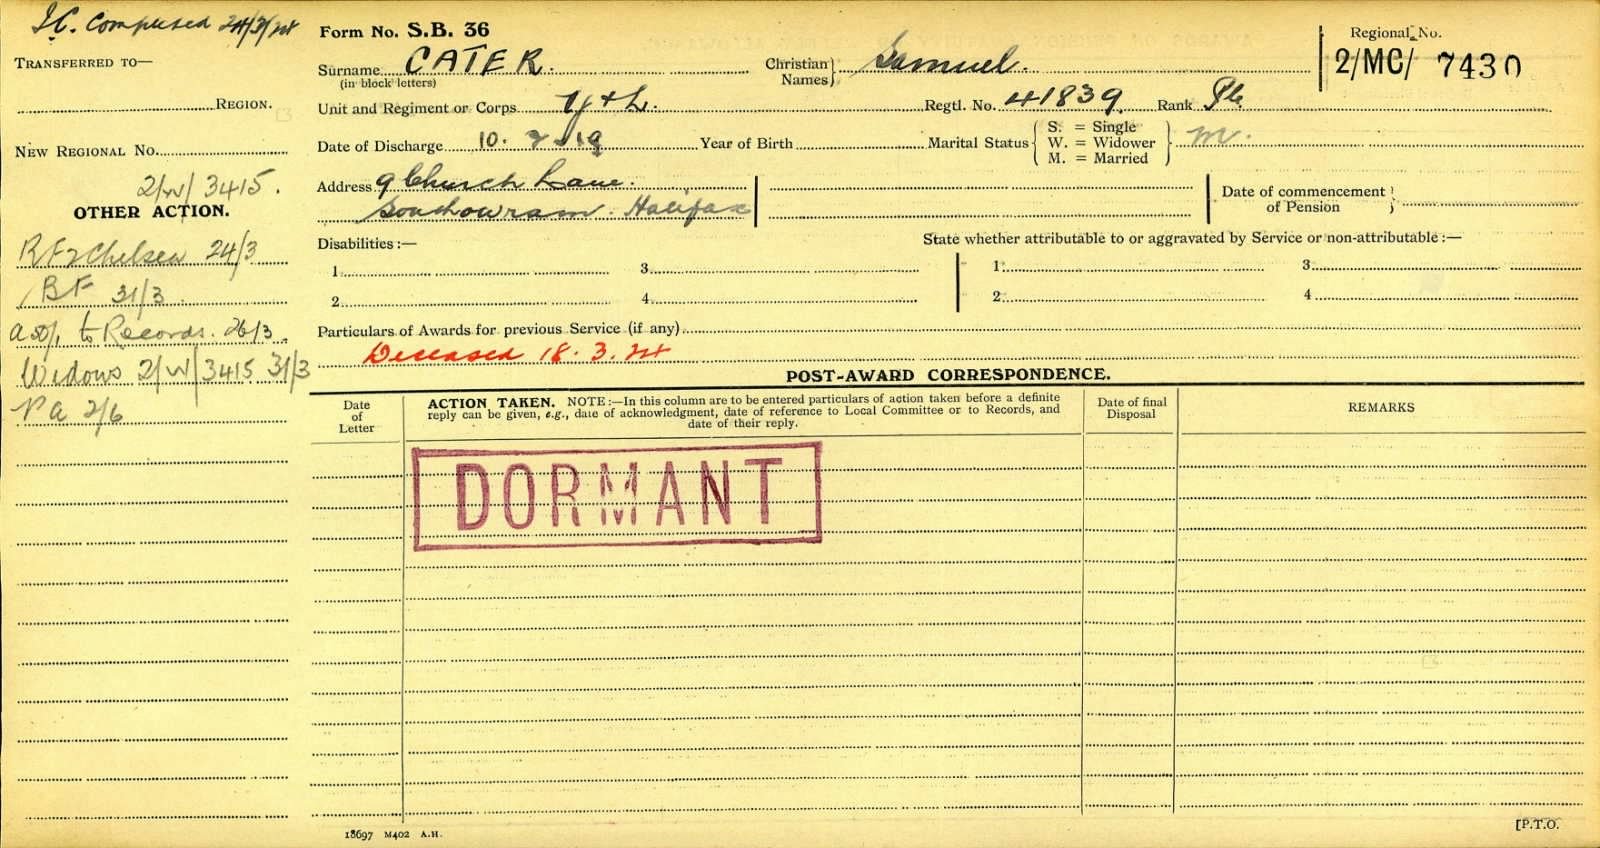 I.C. Compused 24/3/24
TRANSFERRED TO—
REGION.
NEW REGIONAL NO.
2/W/3415.
OTHER ACTION.
Chelsea 24/3
BF 31/3
to Records. 26/3
Widows 2/W/3415 31/3
PA 2/6
Form No. S.B. 36
Surname CATER.
(in block letters)
Christian Names} Samuel.
Regional No.
2/MC/ 7430
Unit and Regiment or Corps Y+L. Regtl. No. 41839 Rank Pte
Date of Discharge 10. 2. 19 Year of Birth Marital Status { S. = Single W. = Widower M. = Married } M.
Address 9 Church Lane.
Southowram. Halifax
Date of commencement of Pension }
Disabilities :— State whether attributable to or aggravated by Service or non-attributable :—
1 3 1 3
2 4 2 4
Particulars of Awards for previous Service (if any)
Deceased 18.3.24
POST-AWARD CORRESPONDENCE.
Date of Letter
ACTION TAKEN. NOTE :—In this column are to be entered particulars of action taken before a definite
reply can be given, e.g., date of acknowledgment, date of reference to Local Committee or to Records, and
date of their reply.
Date of final Disposal
REMARKS
DORMANT
18697 M402 A.H.
[P.T.O.